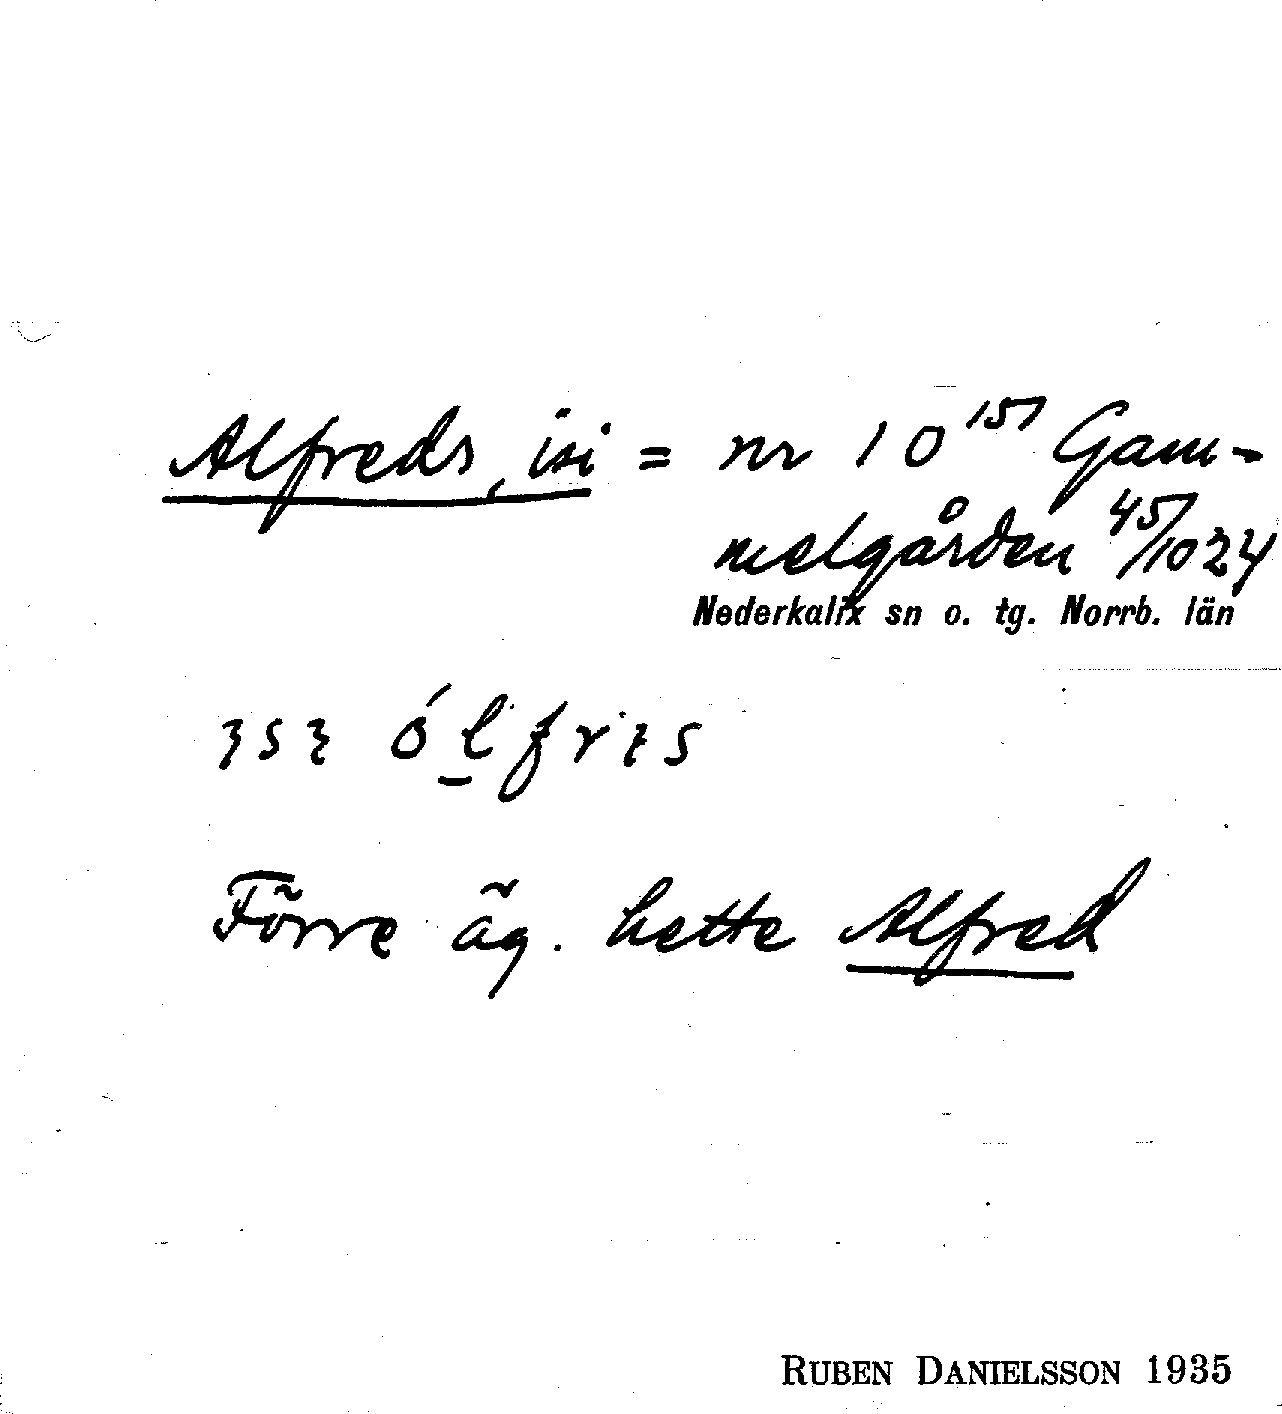 Alfreds, isi = nr 10¹⁵⁷ Gam-
melgården 45/1024
Nederkalix sn o. tg. Norrb. län
ólfrɪs
Förre äg. hette Alfred
RUBEN DANIELSSON 1935